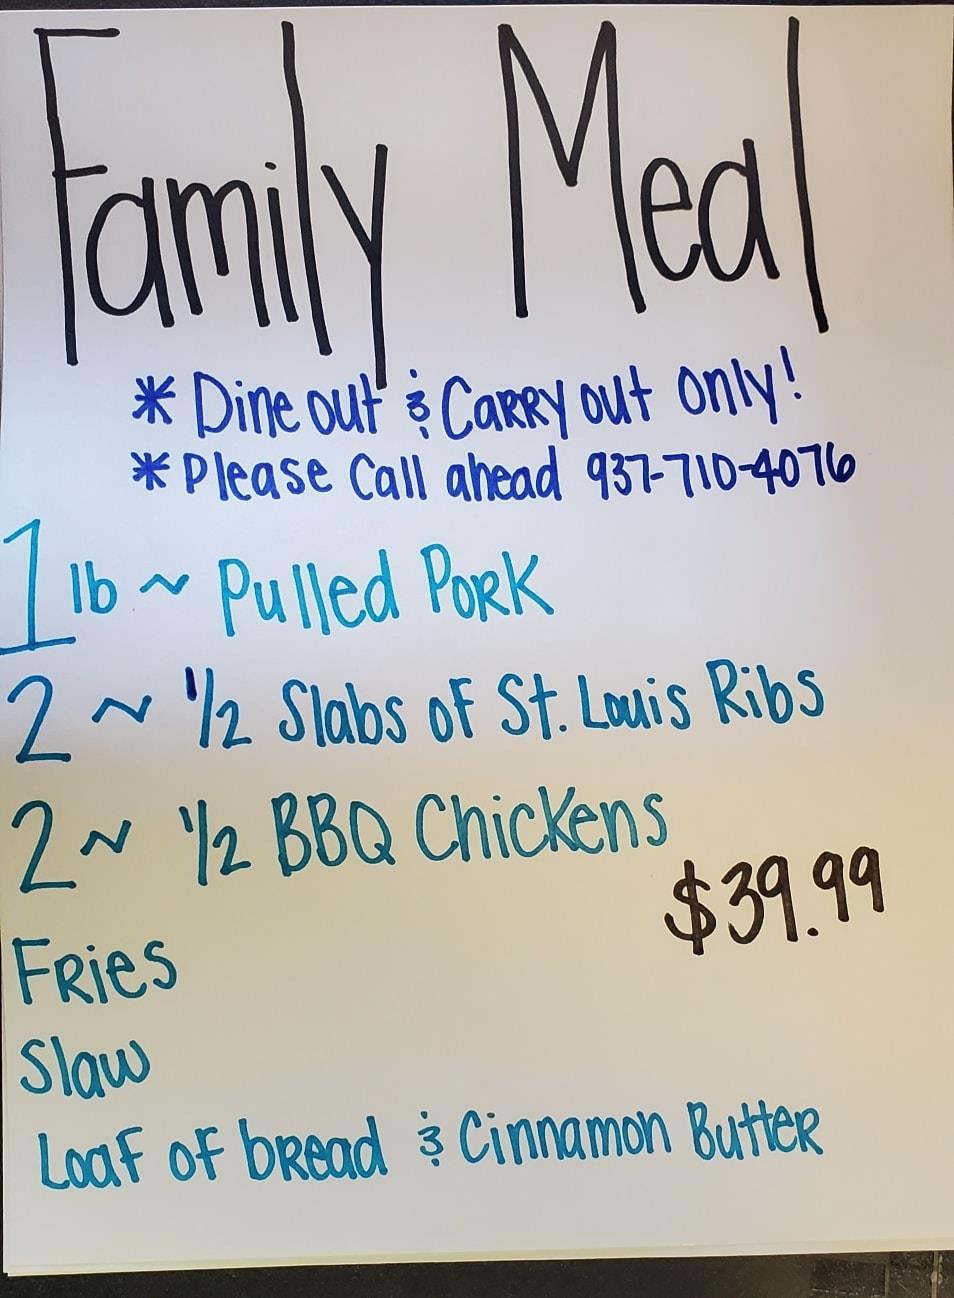 Family Meal
* Dine out & Carry out only!
* Please Call ahead 937-710-4076
1 lb ~ Pulled Pork
2 ~ 1/2 Slabs of St. Louis Ribs
2 ~ 1/2 BBQ Chickens
$39.99
Fries
Slaw
Loaf of bread & Cinnamon Butter